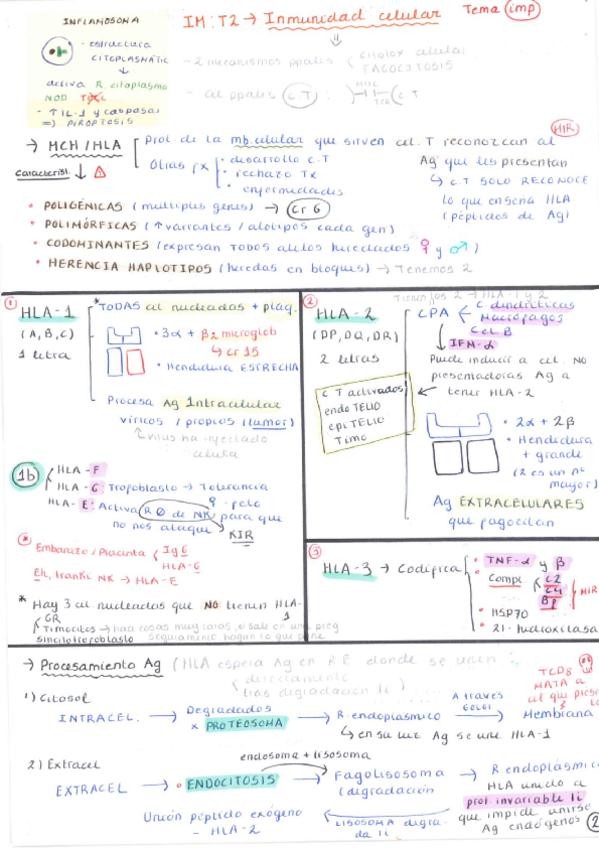 INFLAMOSOMA
· estructura
CITOPLASMÁTIC
activa R. citoplasma
NOD
- ↑ IL-1 y caspasas
=) PIROPTOSIS
IM: T2 → Inmunidad celular Tema imp
- 2 mecanismos ppales citotox celular
FAGOCITOSIS
- Cel ppales (CT) :
MHC
TCR
→ MCH / HLA
Caracterist.
Prot. de la mb. celular que sirven cel. T reconozcan al
MIR
Ag que les presentan
Otras fx
· desarrollo c.T
· rechazo Tx
· enfermedades
↳ C.T SOLO RECONOCE
lo que enseña HLA
(péptidos de Ag)
• POLIGÉNICAS (multiples genes) → Cr 6
• POLIMÓRFICAS (↑ variantes / alotipos cada gen)
• CODOMINANTES (expresan TODOS alelos heredados ♀ y ♂)
• HERENCIA HAPLOTIPOS (heredas en bloques) → Tenemos 2
① HLA-1
(A, B, C)
1 letra
* TODAS cel nucleadas + plaq.
• 3α + β2 microglob
↳ Cr 15
• Hendidura ESTRECHA
Procesa Ag Intracelular
víricos / propios (tumor)
↑ virus ha infectado
celula
1b
HLA - F
HLA - G: Trofoblasto → Tolerancia
HLA - E: Activa R ∅ de NK para que
no nos ataque
KIR
Embarazo / Placenta
Ig G
HLA-G
→ HLA-E
* Hay 3 cel nucleadas que NO tienen HLA-
1
GR
Timocitos
sincitiotrofoblasto
② HLA-2
(DP, DQ, DR)
2 letras
Tienen los 2 → HLA-1 y 2
CPA
C. dendríticas
Macrófagos
Cel B
IFN-α
Puede inducir a cel. NO
presentadoras Ag a
tener HLA-2
c T activados
endoTELIO
epiTELIO
Timo
• 2α + 2β
• Hendidura
+ grande
(2 es un nº
mayor)
Ag EXTRACELULARES
que fagocitan
③ HLA-3 → Codifica
• TNF-α y β
• Compl.
C2
C4
Bf
MIR
• HSP70
• 21-hidroxilasa
→ Procesamiento Ag (HLA espera Ag en RE donde se unen :
directamente
tras degradación Ii
1) Citosol
INTRACEL. → Degradados
x PROTEOSOMA
→ R. endoplásmico
↳ en su luz Ag se une HLA-1
A través
GOLGI
→ Membrana
TCD8
MATA a
2) Extracel
EXTRACEL → • ENDOCITOSIS
endosoma + lisosoma
→ Fagolisosoma
(degradación
→ R endoplásmic
HLA unido a
prot. invariable Ii
que impide unirse
Ag endógenos
LISOSOMA degra-
da Ii
Unión péptido exógeno
- HLA-2
2